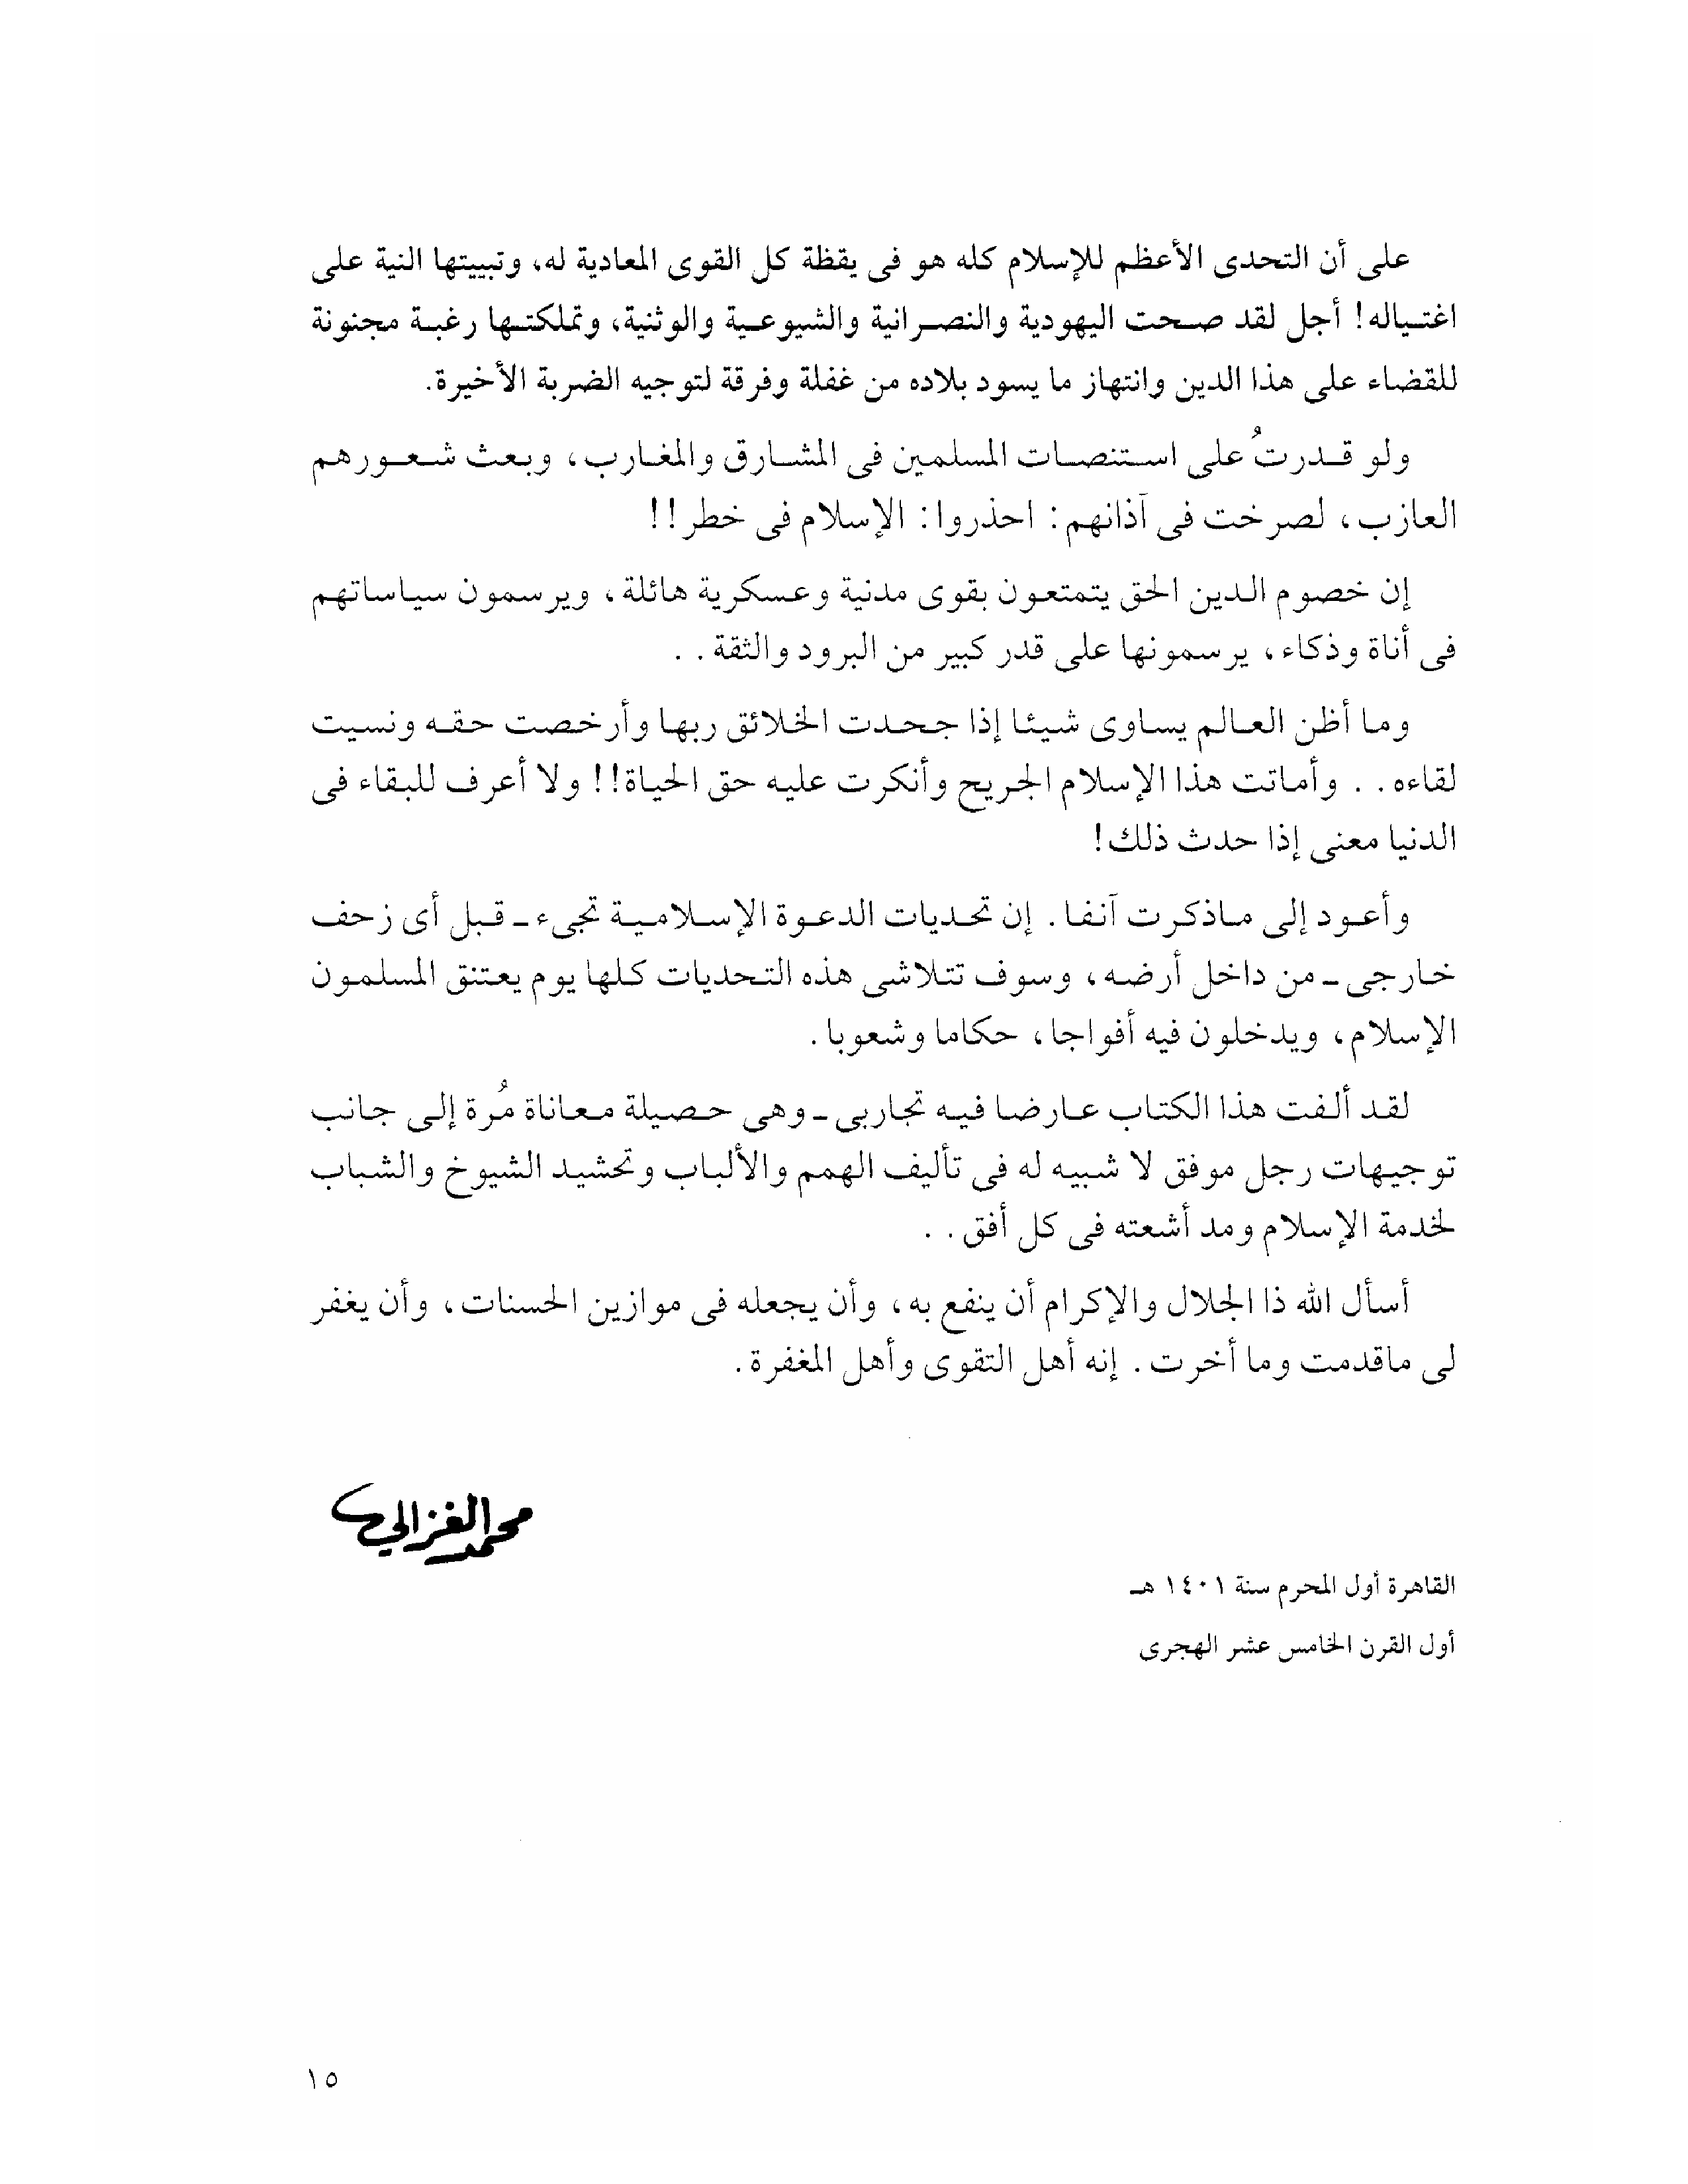 على أن التحدى الأعظم للإسلام كله هو فى يقظة كل القوى المعادية له، وتبييتها النية على
اغتياله! أجل لقد صحت اليهودية والنصرانية والشيوعية والوثنية، وتملكتها رغبة مجنونة
للقضاء على هذا الدين وانتهاز ما يسود بلاده من غفلة وفرقة لتوجيه الضربة الأخيرة.
ولو قدرتُ على استنصات المسلمين فى المشارق والمغارب، وبعث شعورهم
العازب، لصرخت فى آذانهم: احذروا: الإسلام فى خطر!!
إن خصوم الدين الحق يتمتعون بقوى مدنية وعسكرية هائلة، ويرسمون سياساتهم
فى أناة وذكاء، يرسمونها على قدر كبير من البرود والثقة..
وما أظن العالم يساوى شيئا إذا جحدت الخلائق ربها وأرخصت حقه ونسيت
لقاءه.. وأماتت هذا الإسلام الجريح وأنكرت عليه حق الحياة!! ولا أعرف للبقاء فى
الدنيا معنى إذا حدث ذلك!
وأعود إلى ماذكرت آنفا. إن تحديات الدعوة الإسلامية تجىء ـ قبل أى زحف
خارجى ـ من داخل أرضه، وسوف تتلاشى هذه التحديات كلها يوم يعتنق المسلمون
الإسلام، ويدخلون فيه أفواجا، حكاما وشعوبا.
لقد ألفت هذا الكتاب عارضا فيه تجاربى ـ وهى حصيلة معاناة مُرة إلى جانب
توجيهات رجل موفق لا شبيه له فى تأليف الهمم والألباب وتحشيد الشيوخ والشباب
لخدمة الإسلام ومد أشعته فى كل أفق..
أسأل الله ذا الجلال والإكرام أن ينفع به، وأن يجعله فى موازين الحسنات، وأن يغفر
لى ماقدمت وما أخرت. إنه أهل التقوى وأهل المغفرة.
محمد الغزالي
القاهرة أول المحرم سنة ١٤٠١ هـ
أول القرن الخامس عشر الهجرى
١٥